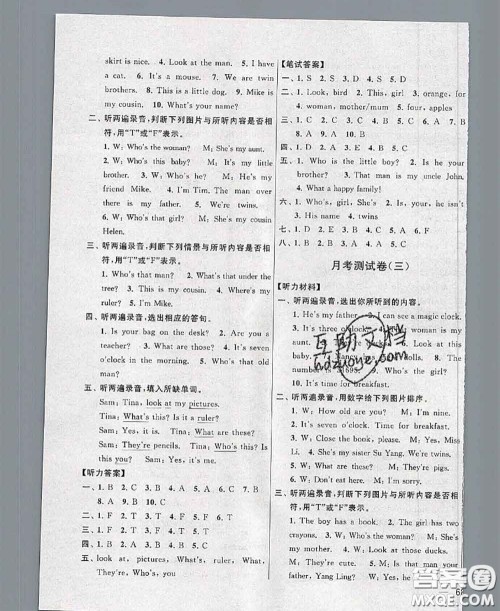 skirt is nice. 4. Look at the man. 5. I have
a cat. 6. It's a mouse. 7. We are twin
brothers. 8. This is a little dog. 9. Mike is
my cousin. 10. What's your name?
二、听两遍录音,判断下列图片与所听内容是否相
符,用"T"或"F"表示。
1. W: Who's the woman? M: She's my aunt.
2. W: Who's this baby? M: It's my little
brother. 3. W: Who's he? M: He's my
friend Mike. 4. I'm Tim. The man over
there is my father. 5. We're twins.
6. W: Who's that girl? M: She's my cousin
Helen.
三、听两遍录音,判断下列情景与所听内容是否相
符,用"T"或"F"表示。
1. Who's that man? 2. What's that under the
tree? 3. This is my cousin. 4. Where's my
ruler? 5. I'm Mike.
四、听两遍录音,选出相应的答句。
1. Is your bag on the desk? 2. Are you a
teacher? 3. What's that over there? 4. It's
seven o'clock in the morning. 5. Who's that old
woman?
五、听两遍录音,填入所缺单词。
Sam: Tina, look at my pictures.
Tina: What's this? Is it a ruler?
Sam: Yes, it is. Tina: What're these?
Sam: They're pencils. Tina: Who's this? Is
this you? Sam: Yes, it's me.
【听力答案】
一、1. B 2. C 3. B 4. A 5. C 6. A 7. B
8. A 9. B 10. C
二、1. F 2. T 3. F 4. T 5. T 6. F
三、1. F 2. T 3. F 4. F 5. T
四、1. B 2. B 3. A 4. B 5. A
五、look at, pictures, What's, ruler, What,
They're, Who's, you
【笔试答案】
一、1. S 2. S 3. D 4. S 5. D
二、1. Look, bird 2. This, girl 3. orange, for
4. woman, mother/mum 5. four, apples
三、1. B 2. A 3. B 4. C 5. A 6. A 7. B
8. A 9. A 10. B
四、1. D 2. A 3. B 4. E 5. C
五、1. Who is the little boy? 2. Is he your
brother? 3. That man is my uncle John.
4. What a happy family!
六、1. Who's, She's 2. Is, your, isn't
3. His name 4. twins
八、1. D 2. A 3. E 4. B 5. C
月考测试卷(三)
【听力材料】
一、听两遍录音,选出你所听到的内容。
1. He's my father. 2. I can see a magic clock.
3. It's three o'clock
7. Look at the ducks. 8. The
number is 9. Who's the girl?
10. It's time for breakfast.
二、听两遍录音,用数字给下列图片排序。
1. W: How old are you? M: I'm nine.
2. It's seven o'clock. Time for breakfast.
3. W: Close the book, please. M: Yes, Miss
Li. 4. W: She's my sister Su Yang. We're twins.
5. W: What are these? M: They're pigs.
6. W: Don't eat here. M: I'm sorry.
三、听两遍录音,判断下列图片与所听内容是否相
符,用"T"或"F"表示。
1. The boy has a book. 2. The girl has two
crayons. 3. W: Who's that woman? M: She's
my aunt. 4. We have three ducks. 5. The man
is your father, Yang Ling? M: Yes, he is.
互助文档
hdzuoye.com
答案圈
MXQE.COM